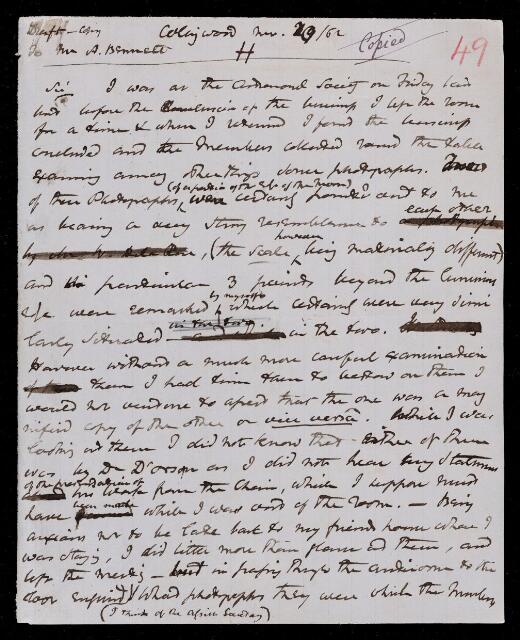 Draft - Copy Collingwood Nov. 29/62
to Mr A. Bennett Copied 49
Sir I was at the Astronomical Society on Friday last
but before the conclusion of the business I left the room
for a time & when I returned I found the business
concluded and the Members collected round the table
examining among other things some photographs. Two
of these Photographs, (of a portion of the Edge of the Moon) were certainly pointed out to me
as bearing a very strong resemblance to each other
(the scale however being materially different)
and in particular 3 points beyond the luminous
Edge were remarked by myself which certainly were very simi
larly situated in the two.
However without a much more careful examination
of them than I had time then to bestow on them I
would not venture to assert that the one was a mag
nified copy of the other or vice versâ While I was
looking at them I did not know that either of them
was by Dr as I did not hear any Statement
of the presentation of his work from the Chair, which I suppose must
have been made while I was out of the room. — Being
anxious not to be late back to my friends house where I
was staying, I did little more than glance at them, and
left the meeting - but in passing through the anteroom to the
door enquired (I think of the Assist Secretary) what photographs they were which the Members